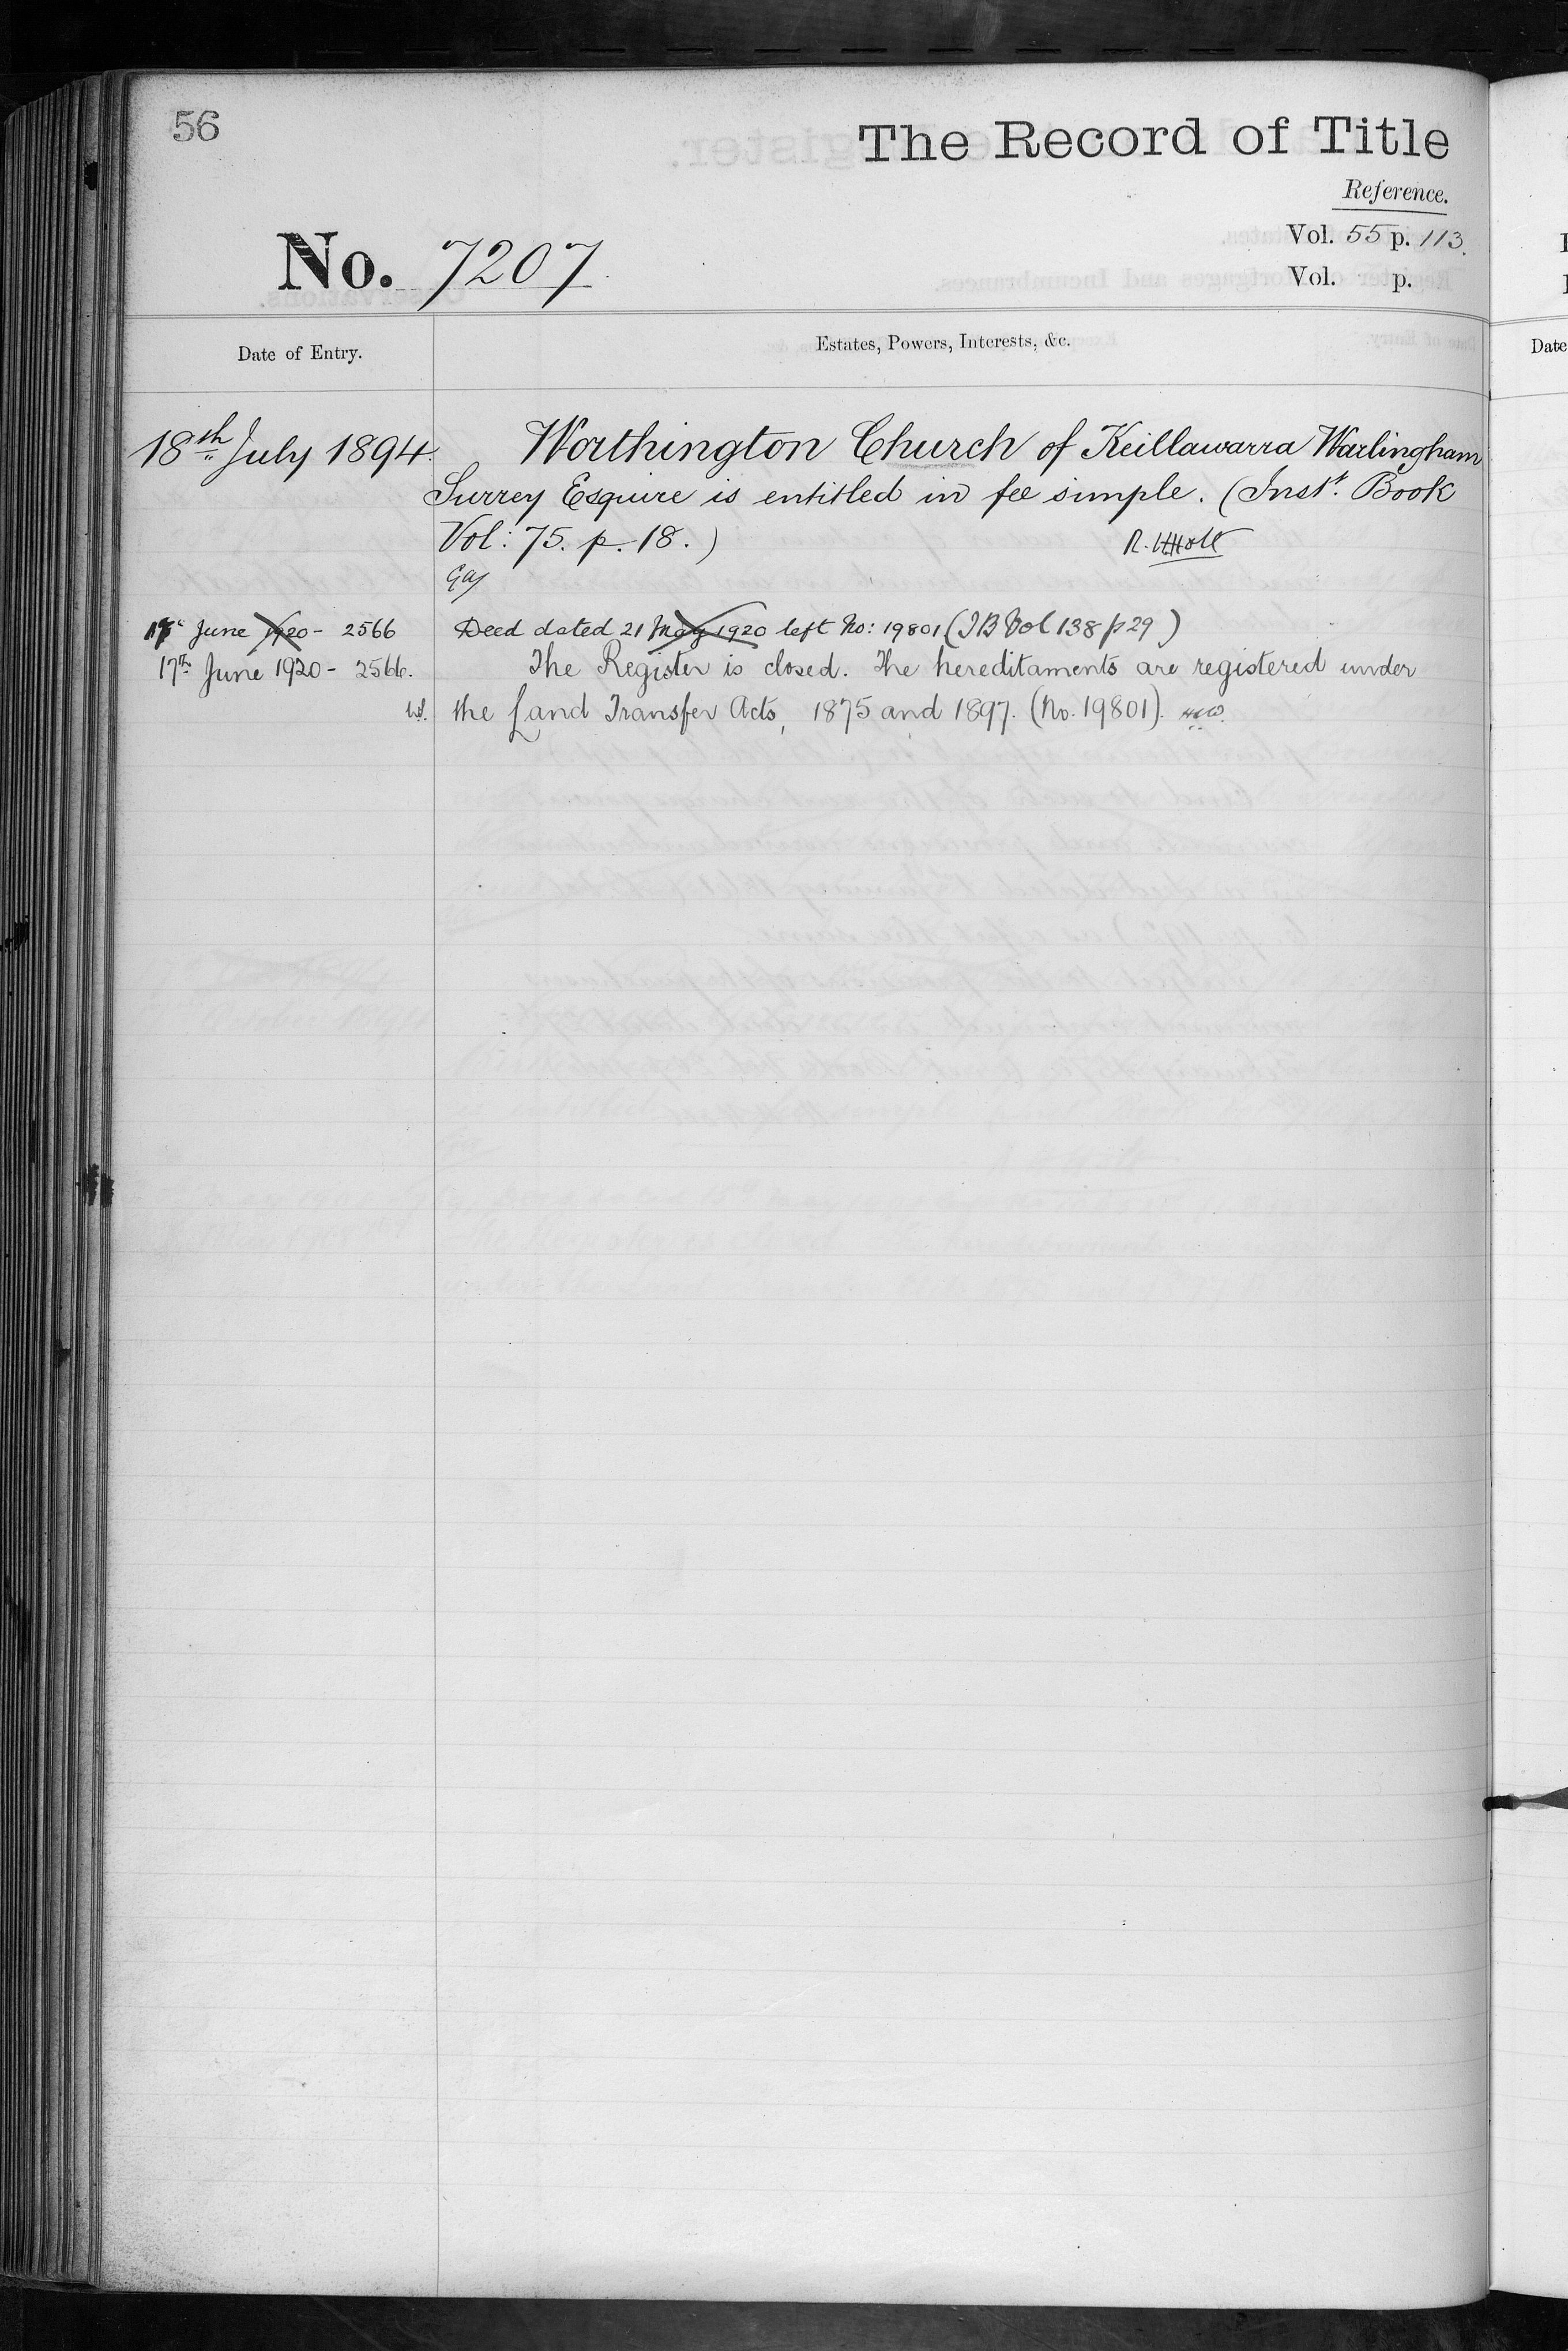 56
The Record of Title
Reference.
No. 7207.
Vol. 55 p. 113.
Vol. p.
Date of Entry.
Estates, Powers, Interests, &c.
18th July 1894.
Worthington Church of Keillawarra Warlingham
Surrey Esquire is entitled in fee simple. (Inst. Book
Vol: 75. p. 18.)
June 1920 - 2566
Deed dated 21 May 1920 left No: 19801 (I B Vol 138 p 29)
17th June 1920 - 2566.
The Register is closed. The hereditaments are registered under
the Land Transfer Acts, 1875 and 1897. (No. 19801).
Date